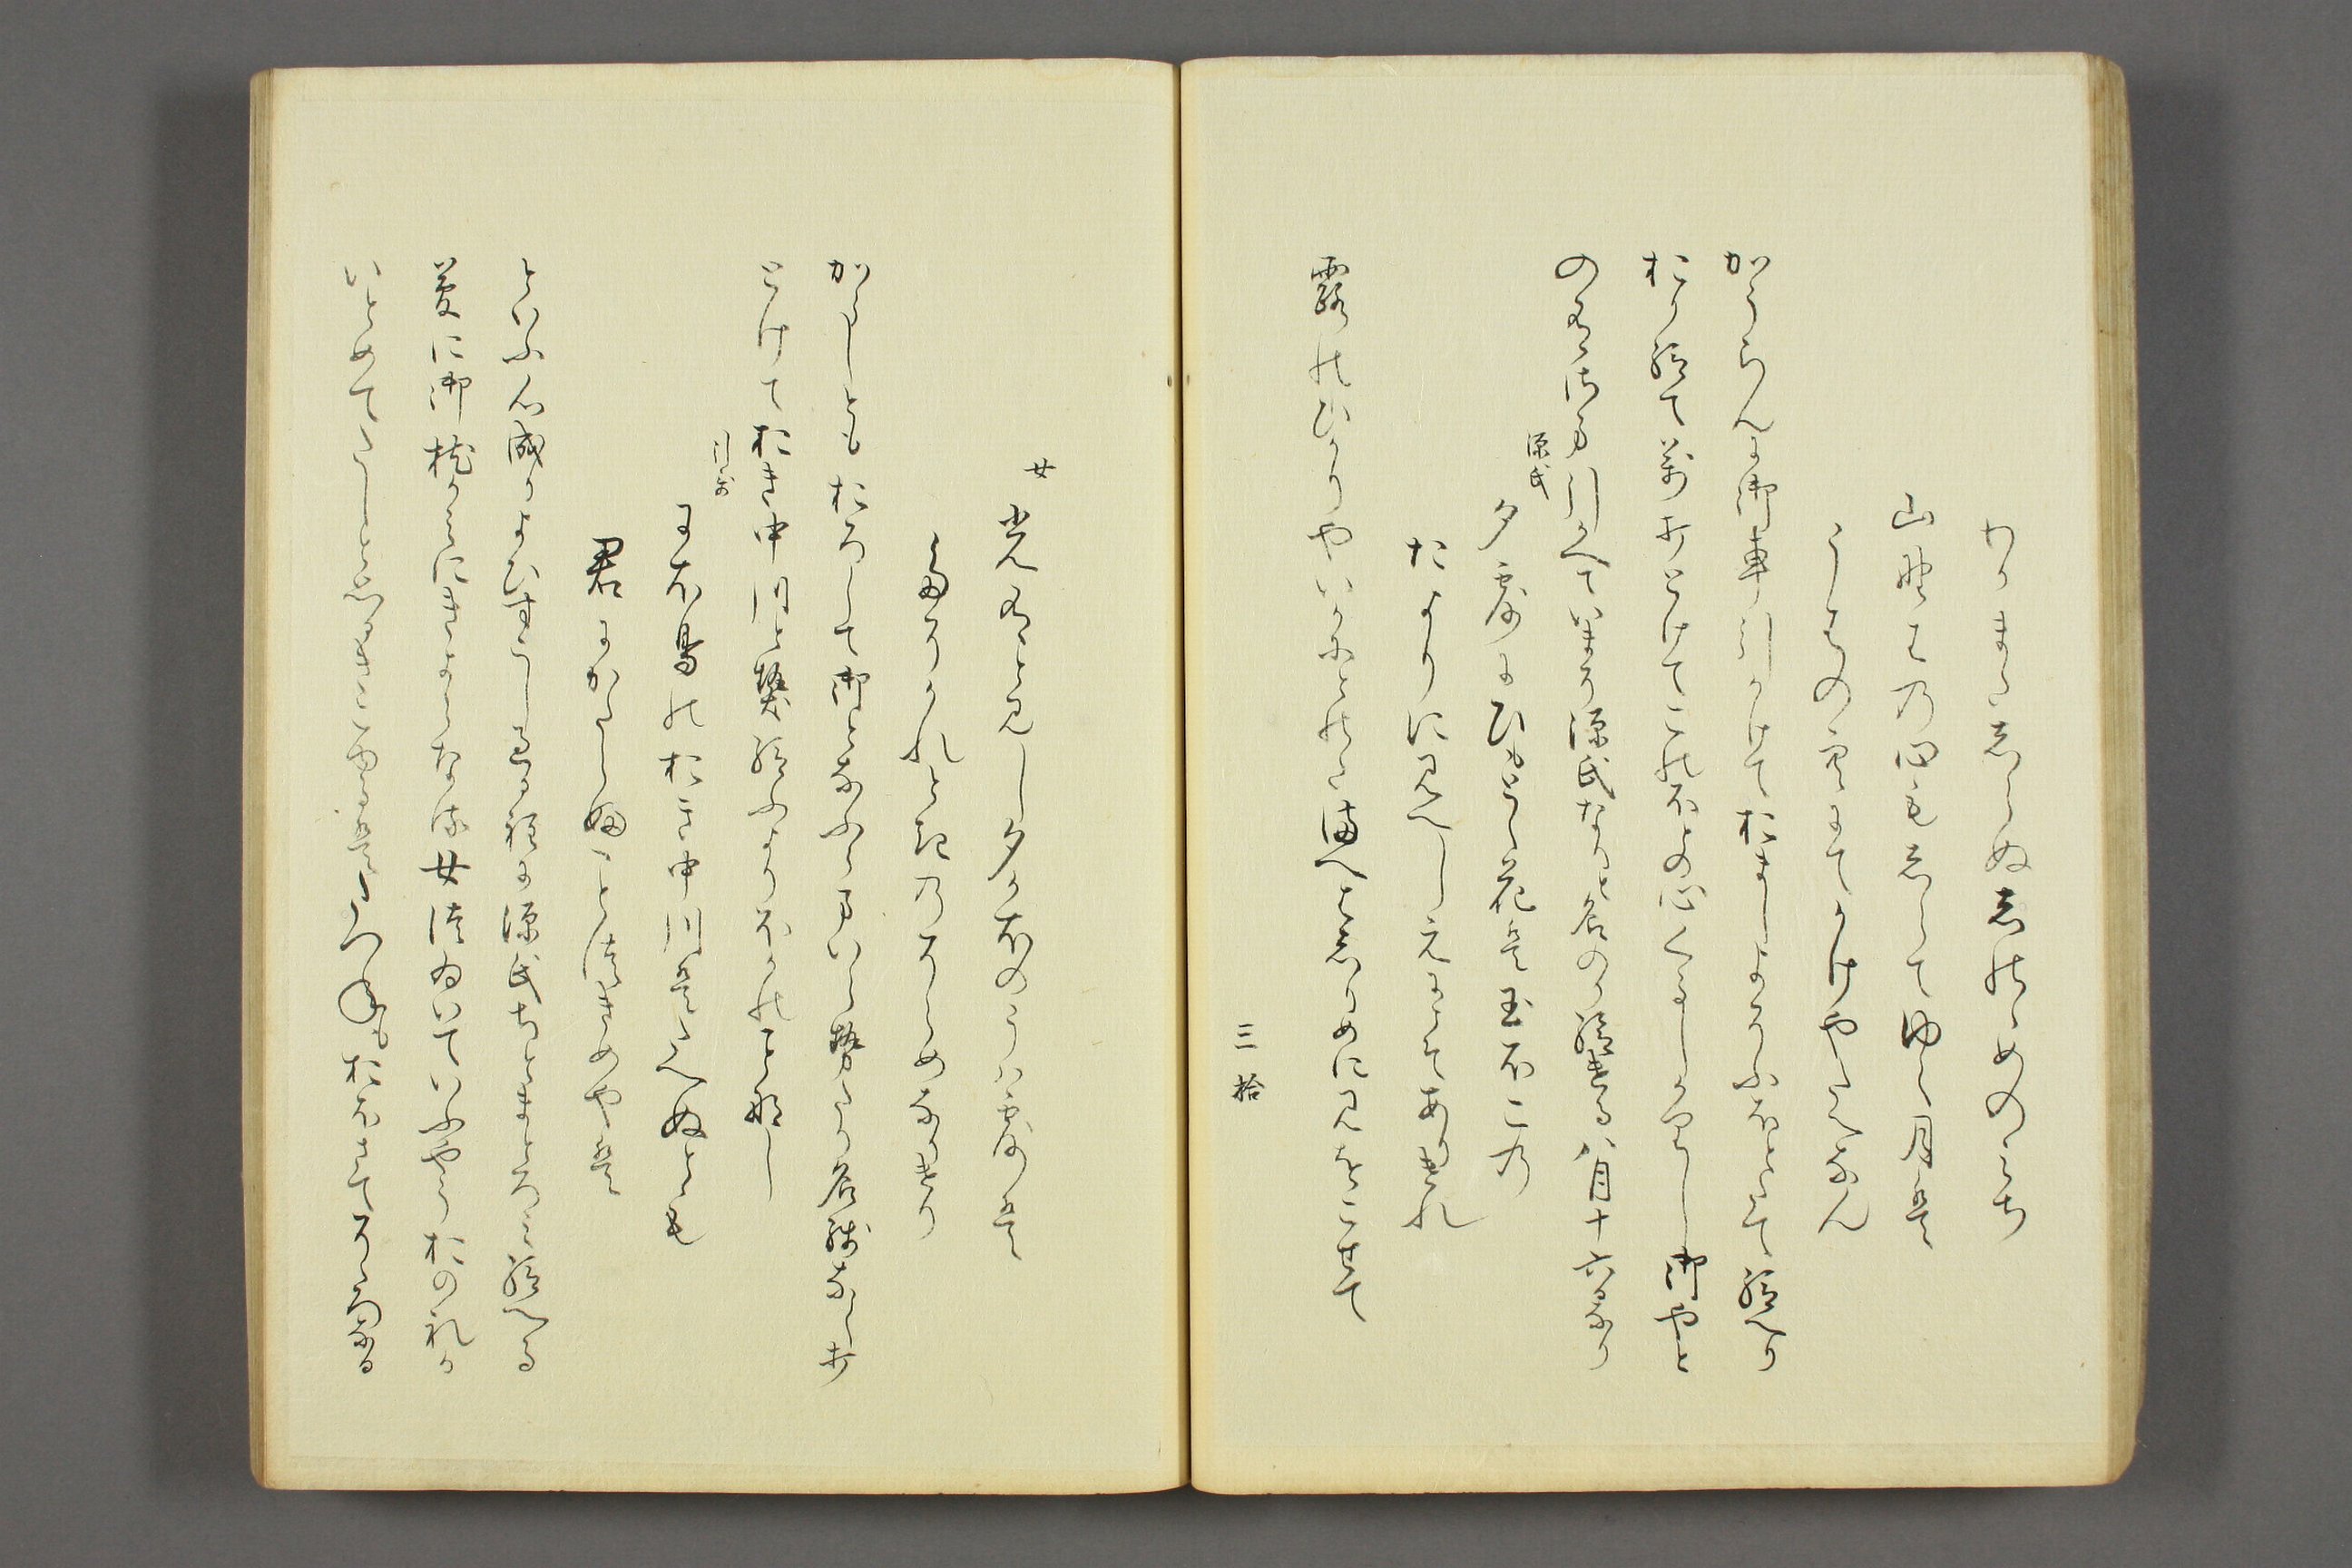 わかまたしらぬしのゝめのみち
山のはの心もしらてゆく月は
うはのそらにてかけやたえなん
かうらんに御車引かけておましよそふほとたち給へり
おり給て萬打とけてこのほとの心くるしかりし御やと
いまそ源氏なりと名のり給ける八月十六日なり
源氏
夕露にひもとく花は玉ほこの
たよりに見えしえにこそありけれ
露のひかりやいかにとのたまへはしりめに見をこせて
三拾
女
光ありと見し夕かほのうは露は
たそかれ時のそらめなりけり
かうしともおろして御となふらまいらせたり名残なく打
とけておき中川と契給ふよりほかのことなし
引哥
にほ鳥のおき中川はたえぬとも
君にかたらふことつきめやは
といふ心成りよひすこしすくる程に源氏ちとまとろみ給へる
夢に御枕かみにきよけなる女ゐていふやうおのれか
いとめてたしと思きこゆるをはたつねもおもほさてかくことなる